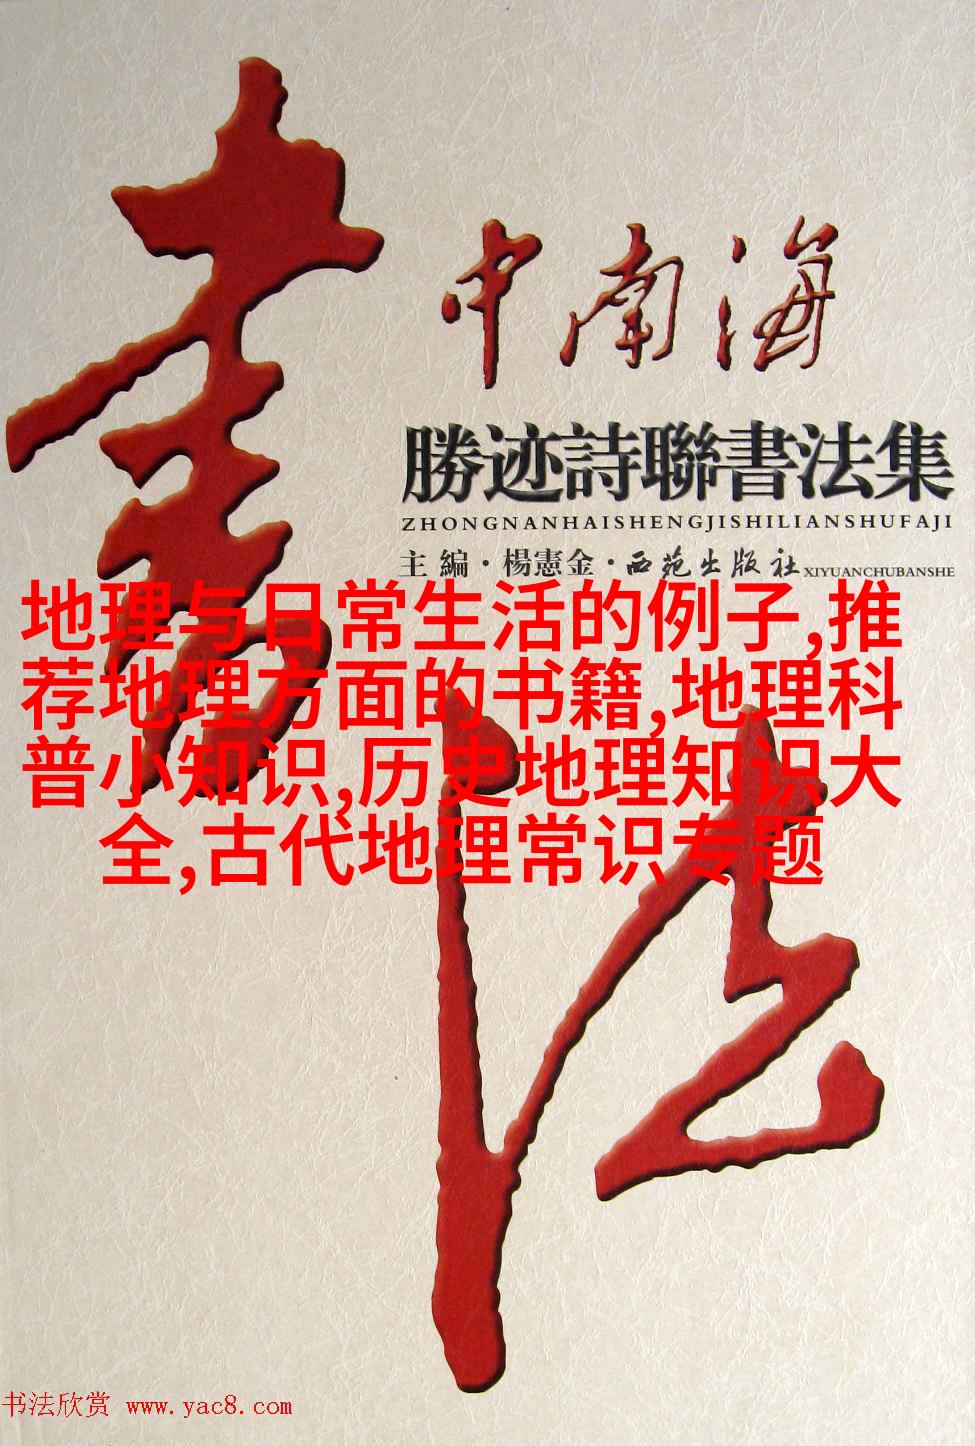 書法
中南海
勝迹詩聯書法集
ZHONGNANHAISHENGJISHILIANSHUFAJI
主編·楊憲金·西苑出版社 XIYUANCHUBANSHE
地理与日常生活的例子,推
荐地理方面的书籍,地理科
普小知识,历史地理知识大
全,古代地理常识专题
书法欣赏 www.yac8.com